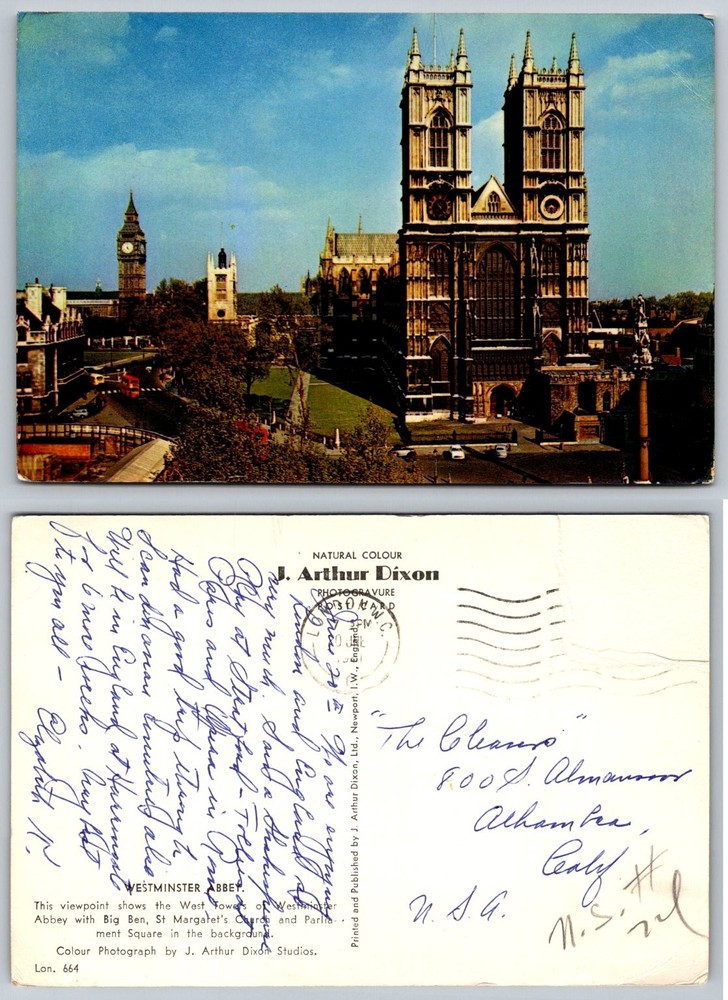 NATURAL COLOUR
J. Arthur Dixon
PHOTOGRAVURE
POST CARD
LONDON W.C.
PM
June 20th We are enjoying
London and England so
very much. Saw a Shakespeare
Play at Stratford -
Paris and Opera in
Had a good trip through
Scandinavian
Will be in England at
for 6 more weeks.
to you all -
"The Cleavers"
800 S. Almansor
Alhambra,
Calif
U. S. A.
WESTMINSTER ABBEY.
This viewpoint shows the West Towers of Westminster
Abbey with Big Ben, St Margaret's Church and Parlia-
ment Square in the background.
Colour Photograph by J. Arthur Dixon Studios.
Lon. 664
Printed and Published by J. Arthur Dixon, Ltd., Newport, I.W., England.